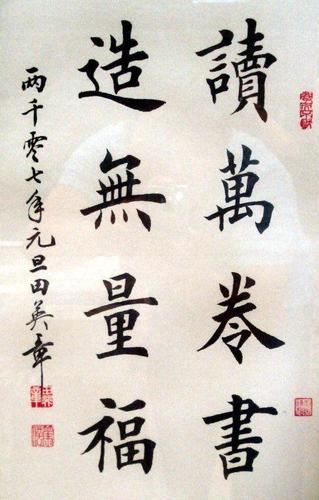 讀萬卷書
造無量福
两千零七年元旦田英章